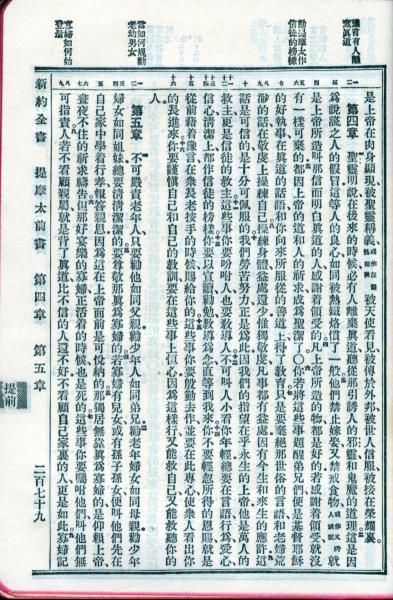 豫言有人離
棄真道
勸提摩太作
信徒的榜樣
當如何規勸
老幼男女
寡婦如何始
是上帝在肉身顯現被聖靈稱義被天使看見被傳於外邦被世人信服被接在榮耀裏
第四章 聖靈明說在後來的時候必有人離棄真道聽從那引誘人的邪靈和鬼魔的道理這是因
爲說謊之人的假冒這等人的良心如同被熱鐵烙慣了一般他們禁止嫁娶又禁戒食物就
是上帝所造叫那信而明白真道的人感謝着領受的凡上帝所造的物都是好的若感謝着領受就沒
有一樣可棄的都因上帝的道和人的祈求成爲聖潔了○你若將這些事題醒弟兄們便是基督耶穌
的好執事在真道的話語和你向來所服從的善道上得了教育只是要棄絕那世俗的言語和老婦荒
渺的話在敬虔上操練自己操練身體益處還少惟獨敬虔凡事都有益處因有今生和來生的應許這
話是可信的是十分可佩服的我們勞苦努力正是爲此因我們的指望在乎永生的上帝他是萬人的
救主更是信徒的救主這些事你要吩咐人也要教導人不可叫人小看你年輕總要在言語行爲愛心
信心清潔上都作信徒的榜樣你要以宣讀勸勉教導爲念直等到我來你不要輕忽所得的恩賜就是
從前藉着豫言在衆長老按手的時候賜給你的這些事你要殷勤去作並要在此專心使衆人看出你
的長進來你要謹慎自己和自己的教訓要在這些事上恒心因爲這樣行又能救自己又能救聽你的
人
第五章 不可嚴責老年人只要勸他如同父親勸少年人如同弟兄勸老年婦女如同母親勸少年
婦女如同姐妹總要清清潔潔的要尊敬那真爲寡婦的若寡婦有兒女或有孫子孫女便叫他們先在
自己家中學着行孝報答親恩因爲這在上帝面前是可悅納的那獨居無靠真爲寡婦的是仰賴上帝
晝夜不住的祈求禱告但那好宴樂的寡婦正活着的時候也是死的這些事你要囑咐他們叫他們無
可指責人若不看顧親屬就是背了真道比不信的人還不好不看顧自己家裏的人更是如此寡婦記
新約全書 提摩太前書 第四章 第五章 二百七十九
提前